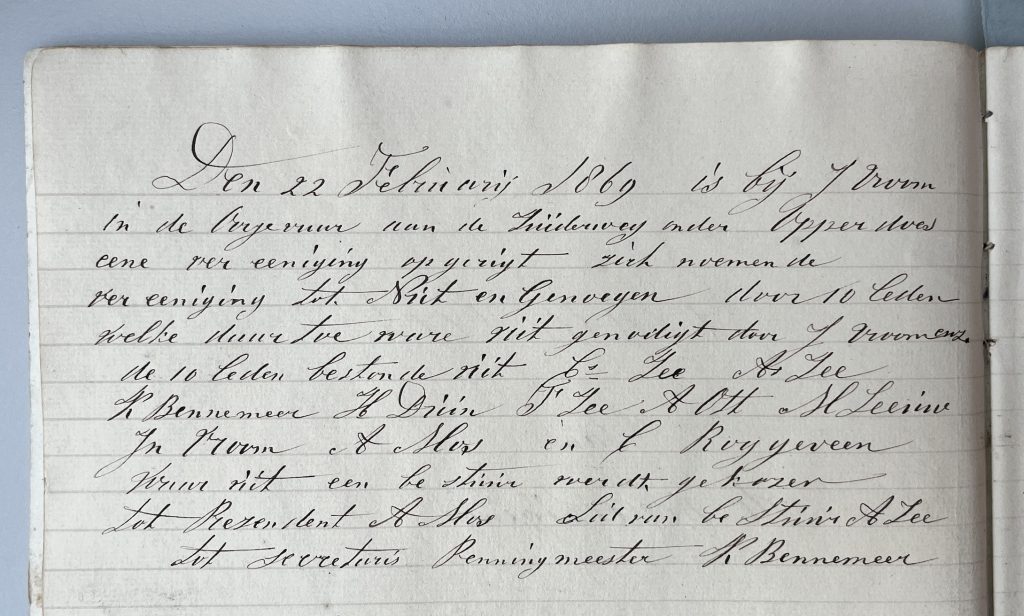 Den 22 Februarij 1869 is bij J Vroom
in de Oogevaar aan de Zuiderweg onder Opperdoes
eene ver eeniging opgerigt zich noemende
vereeniging tot Nut en Genoegen door 10 leden
welke daar toe ware uit genodigt door J Vroom enz.
de 10 leden bestonde uit Cs Zee Ar Zee
K Bennemeer H Duin F Zee A Ott M Leeuw
Jn Vroom A Mos en C Roggeveen
waar uit een bestuur werdt gekozen
tot Prezendent A Mos Lid van be Stuur A Zee
tot secretaris Penningmeester K Bennemeer